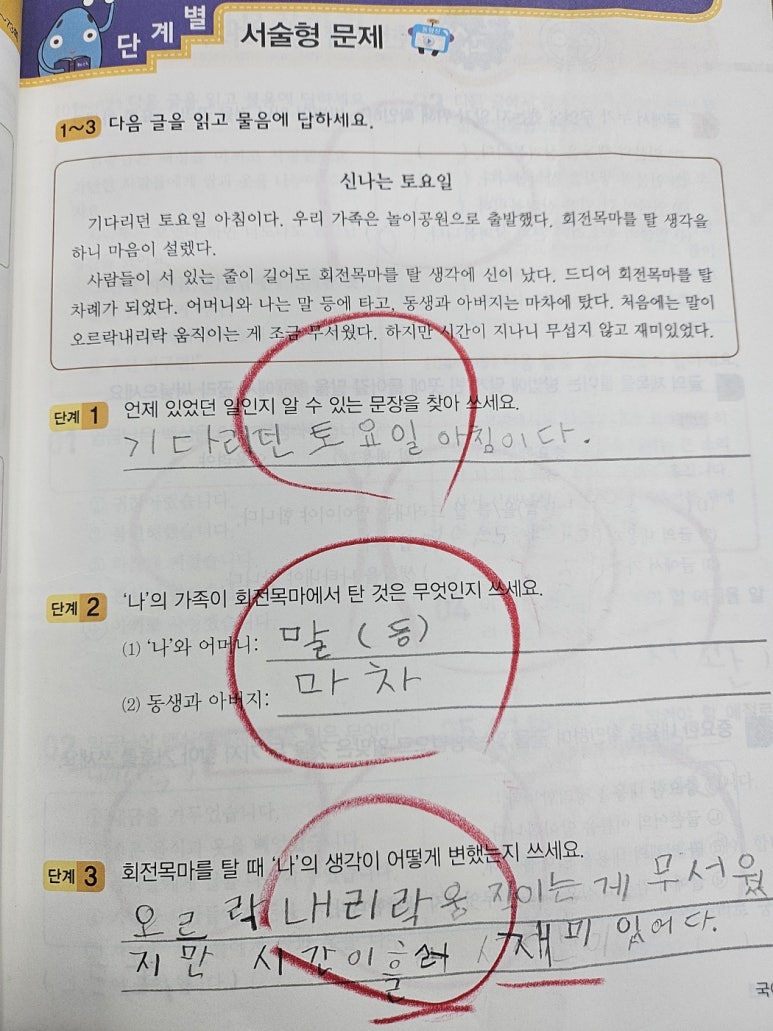 단계별 서술형 문제
1~3 다음 글을 읽고 물음에 답하세요.
신나는 토요일
기다리던 토요일 아침이다. 우리 가족은 놀이공원으로 출발했다. 회전목마를 탈 생각을
하니 마음이 설렜다.
사람들이 서 있는 줄이 길어도 회전목마를 탈 생각에 신이 났다. 드디어 회전목마를 탈
차례가 되었다. 어머니와 나는 말 등에 타고, 동생과 아버지는 마차에 탔다. 처음에는 말이
오르락내리락 움직이는 게 조금 무서웠다. 하지만 시간이 지나니 무섭지 않고 재미있었다.
단계 1 언제 있었던 일인지 알 수 있는 문장을 찾아 쓰세요.
기다리던 토요일 아침이다.
단계 2 '나'의 가족이 회전목마에서 탄 것은 무엇인지 쓰세요.
(1) '나'와 어머니: 말 (등)
(2) 동생과 아버지: 마차
단계 3 회전목마를 탈 때 '나'의 생각이 어떻게 변했는지 쓰세요.
오르락내리락 웅직이는 게 무서웠
지만 시간이 재미있어다.
국어